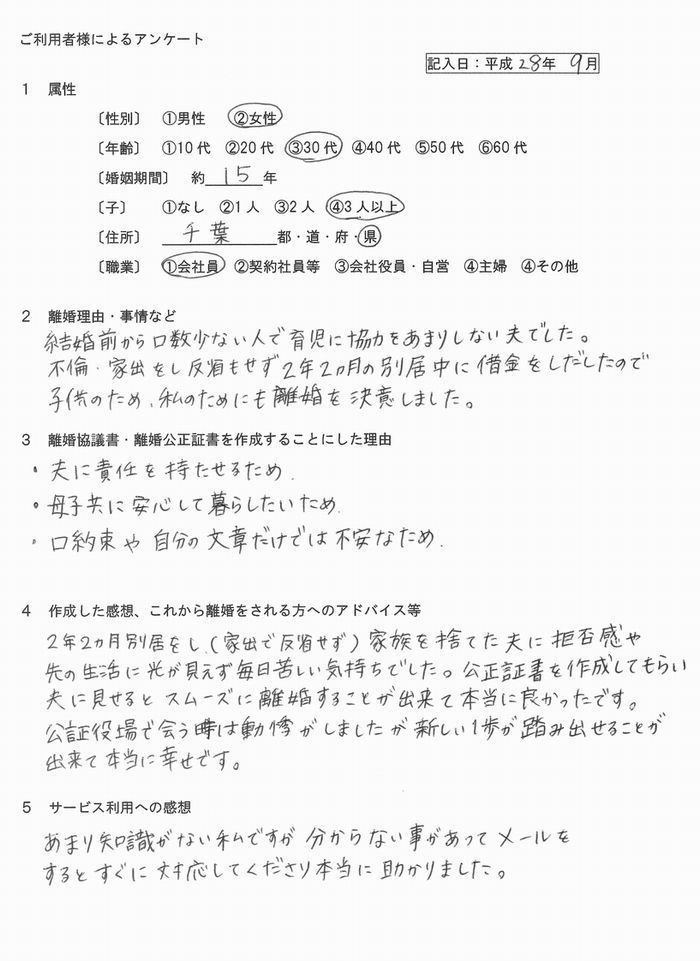 ご利用者様によるアンケート
記入日：平成 28年 9月
1 属性
〔性別〕 ①男性 ②女性
〔年齢〕 ①10代 ②20代 ③30代 ④40代 ⑤50代 ⑥60代
〔婚姻期間〕 約 15 年
〔子〕 ①なし ②1人 ③2人 ④3人以上
〔住所〕 千葉 都・道・府・県
〔職業〕 ①会社員 ②契約社員等 ③会社役員・自営 ④主婦 ④その他
2 離婚理由・事情など
結婚前から口数少ない人で育児に協力をあまりしない夫でした。
不倫・家出をし反省もせず2年2ヵ月の別居中に借金をしだしたので
子供のため、私のためにも離婚を決意しました。
3 離婚協議書・離婚公正証書を作成することにした理由
・夫に責任を持たせるため.
・母子共に安心して暮らしたいため.
・口約束や自分の文章だけでは不安なため.
4 作成した感想、これから離婚をされる方へのアドバイス等
2年2ヵ月別居をし、(家出で反省せず)家族を捨てた夫に拒否感や
先の生活に光が見えず毎日苦しい気持ちでした。公正証書を作成してもらい
夫に見せるとスムーズに離婚することが出来て本当に良かったです。
公証役場で会う時は動悸がしましたが新しい1歩が踏み出せることが
出来て本当に幸せです。
5 サービス利用への感想
あまり知識がない私ですが分からない事があってメールを
するとすぐに対応してくださり本当に助かりました。